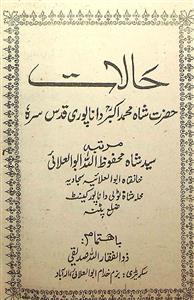 حالات
حضرت شاہ محمد اکبر داناپوری قدس سرہٗ
مرتبہ
سید شاہ محفوظ اللہ ابوالعلائی
خانقاہ ابوالعلائیہ سجادیہ
محلہ شاہ ٹولی داناپور کینٹ
ضلع پٹنہ
باہتمام
ذوالفقار اللہ صدیقی
سکریٹری، بزم خدام ابوالعلائی الہ آباد